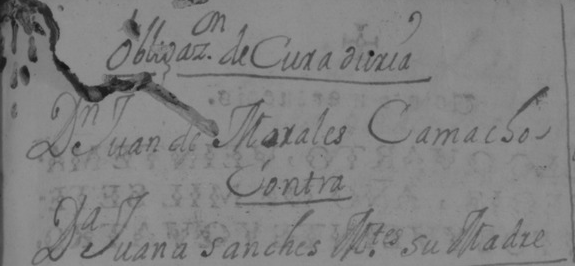 Obligazn. de Curaduria
Dn Juan de Morales Camacho
Contra
Da Juana sanches Mtes su Madre